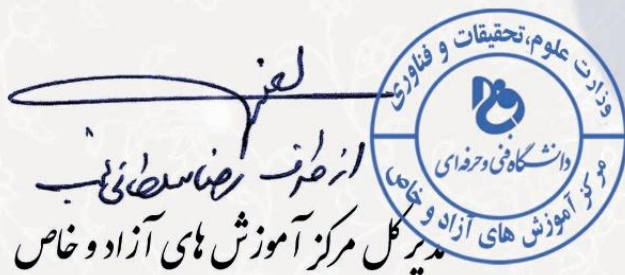 وزارت علوم، تحقیقات و فناوری
دانشگاه فنی و حرفه‌ای
مرکز آموزش های آزاد و خاص
از طرف رضا
مدیر کل مرکز آموزش های آزاد و خاص